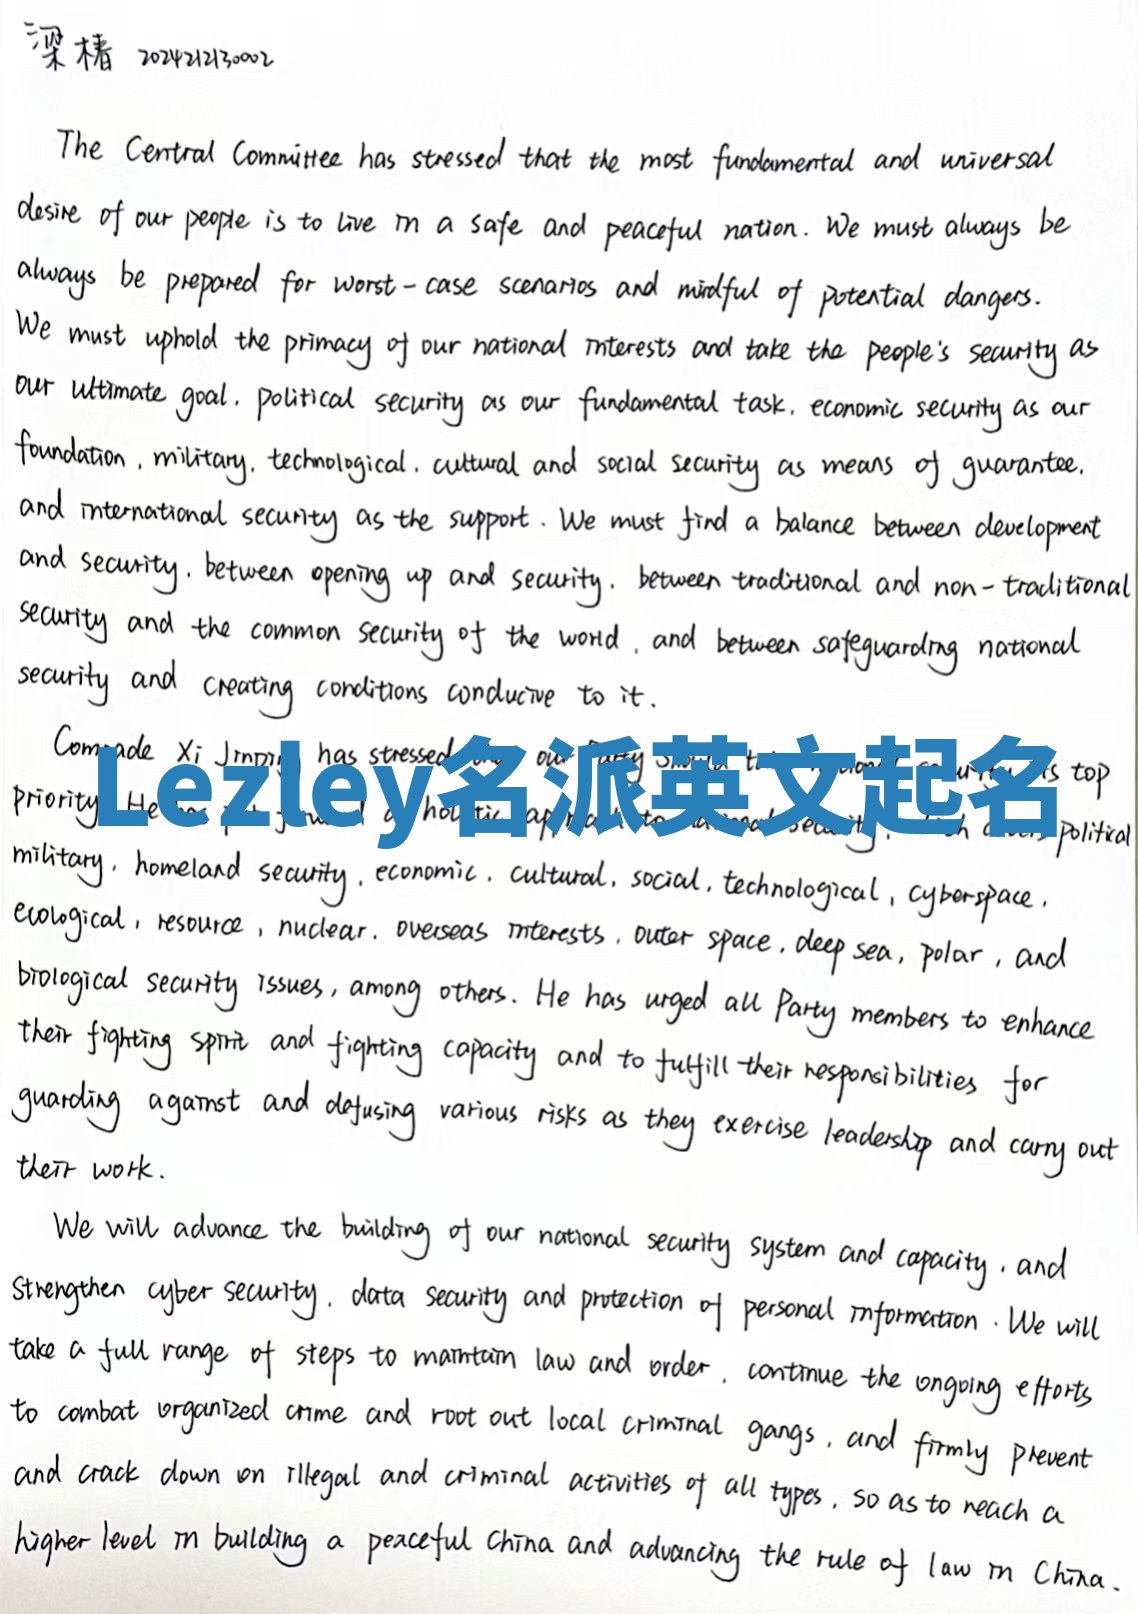 梁椿 2024212130002
The Central Committee has stressed that the most fundamental and universal
desire of our people is to live in a safe and peaceful nation. We must always be
always be prepared for worst-case scenarios and mindful of potential dangers.
We must uphold the primacy of our national interests and take the people's security as
our ultimate goal, political security as our fundamental task, economic security as our
foundation, military, technological, cultural and social security as means of guarantee,
and international security as the support. We must find a balance between development
and security, between opening up and security, between traditional and non-traditional
security and the common security of the world, and between safeguarding national
security and creating conditions conducive to it.
Comrade Xi Jinping has stressed our Party top
Lezley名派英文起名
priority. He a holistic to national security, political
military, homeland security, economic, cultural, social, technological, cyberspace,
ecological, resource, nuclear, overseas interests, outer space, deep sea, polar, and
biological security issues, among others. He has urged all Party members to enhance
their fighting spirit and fighting capacity and to fulfill their responsibilities for
guarding against and defusing various risks as they exercise leadership and carry out
their work.
We will advance the building of our national security system and capacity, and
strengthen cyber security, data security and protection of personal information. We will
take a full range of steps to maintain law and order, continue the ongoing efforts
to combat organized crime and root out local criminal gangs, and firmly prevent
and crack down on illegal and criminal activities of all types, so as to reach a
higher level in building a peaceful China and advancing the rule of law in China.